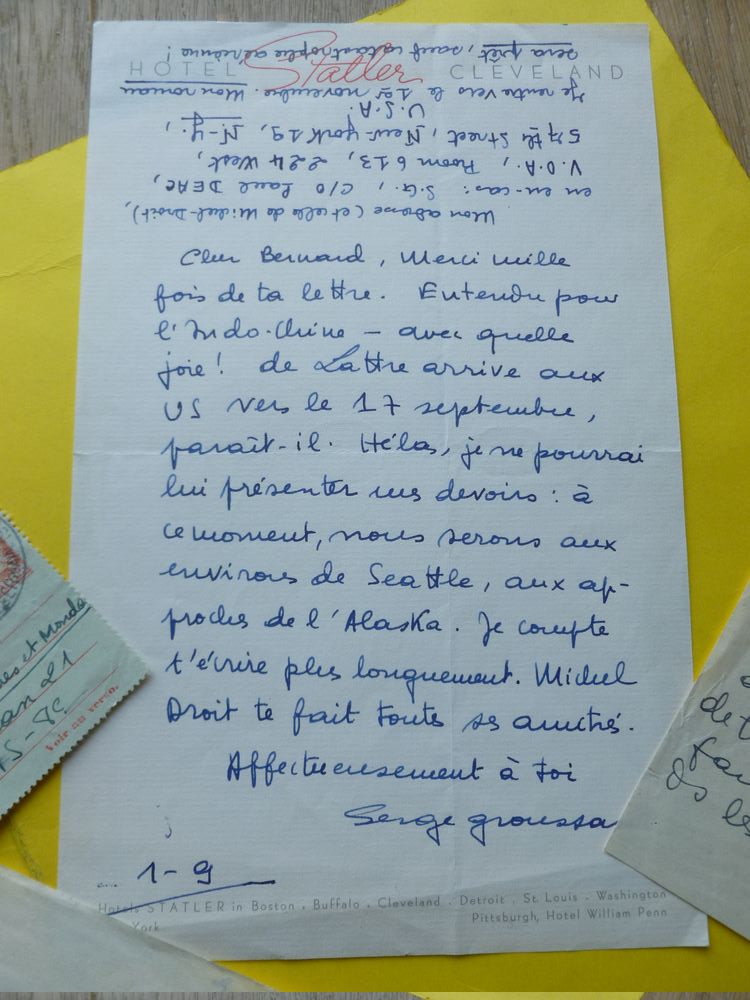 HOTEL Statler CLEVELAND
Cher Bernard, Merci mille
fois de ta lettre. Entendu pour
l'Indo-Chine – avec quelle
joie! de Lattre arrive aux
US vers le 17 septembre,
paraît-il. Hélas, je ne pourrai
lui présenter mes devoirs : à
ce moment, nous serons aux
environs de Seattle, aux ap-
proches de l'Alaska. Je compte
t'écrire plus longuement. Michel
Droit te fait toutes ses amitiés.
Affectueusement à toi
Serge Groussa
1-9
Mon adresse (et celle de Michel-Droit),
en en-cas: S.G., c/o Paul DEAC,
V.O.A., Room 613, 224 West,
57th Street, New-York 19, N-Y.,
U.S.A.
Je rentre vers le 1er novembre. Mon roman
sera prêt, sauf catastrophe aérienne!
Hotels STATLER in Boston . Buffalo . Cleveland . Detroit . St. Louis . Washington
York Pittsburgh, Hotel William Penn
es et Monda
an 21
TS-8e
Voir au verso.
de